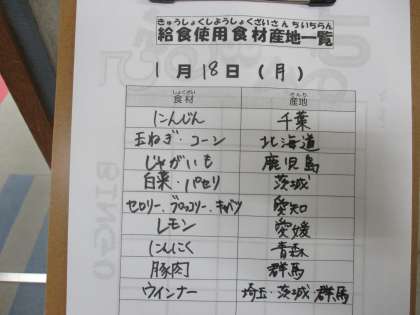 きゅうしょくしようしょくざいさんちいちらん
給食使用食材産地一覧
1月18日（月）
しょくざい さんち
食材 産地
にんじん 千葉
玉ねぎ・コーン 北海道
じゃがいも 鹿児島
白菜・パセリ 茨城
セロリー、ブロッコリー、キャベツ 愛知
レモン 愛媛
にんにく 青森
豚肉 群馬
ウインナー 埼玉・茨城 群馬
BINGO